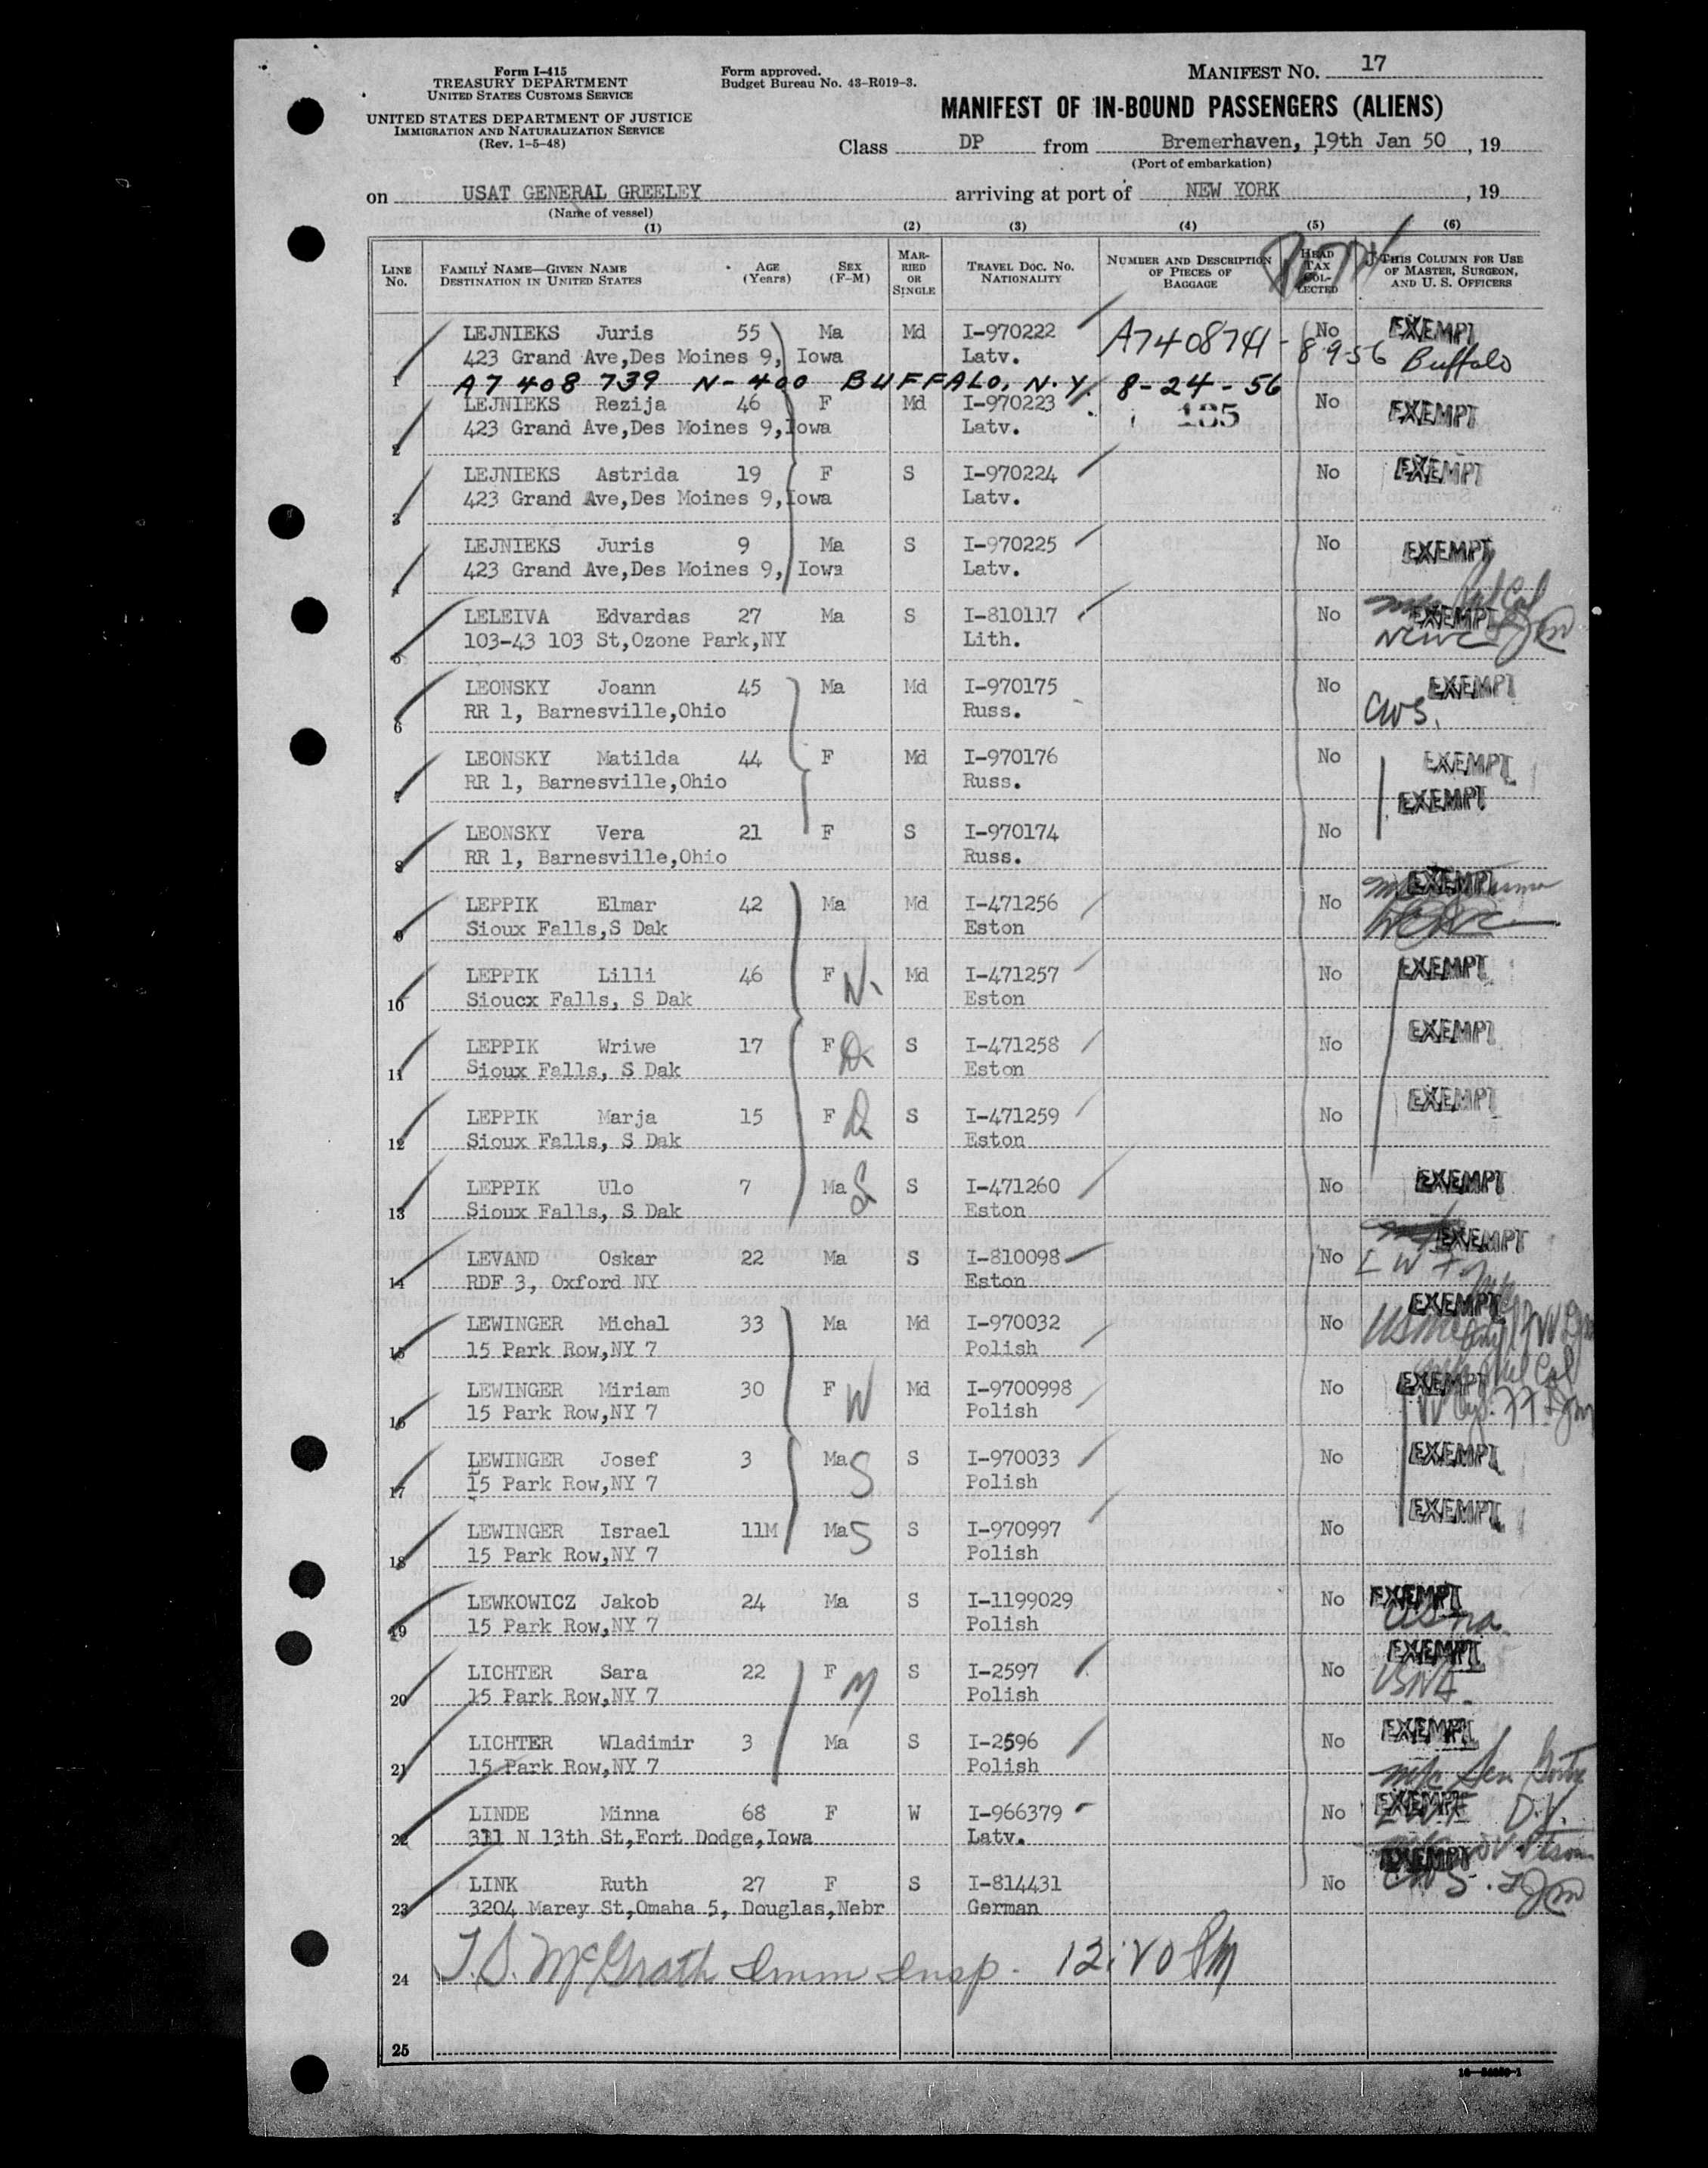 Form I-415
TREASURY DEPARTMENT
UNITED STATES CUSTOMS SERVICE
UNITED STATES DEPARTMENT OF JUSTICE
IMMIGRATION AND NATURALIZATION SERVICE
(Rev. 1-5-48)
Form approved.
Budget Bureau No. 43-R019-3.
MANIFEST NO. 17
MANIFEST OF IN-BOUND PASSENGERS (ALIENS)
Class DP from Bremerhaven, 19th Jan 50, 19
(Port of embarkation)
on USAT GENERAL GREELEY arriving at port of NEW YORK, 19
(Name of vessel)
(1) (2) (3) (4) (5) (6)
LINE No. FAMILY NAME—GIVEN NAME DESTINATION IN UNITED STATES AGE (Years) SEX (F-M) MARRIED OR SINGLE TRAVEL DOC. NO. NATIONALITY NUMBER AND DESCRIPTION OF PIECES OF BAGGAGE HEAD TAX COLLECTED THIS COLUMN FOR USE OF MASTER, SURGEON, AND U. S. OFFICERS
LEJNIEKS Juris 55 Ma Md I-970222 A7408741 - No EXEMPT
1 423 Grand Ave,Des Moines 9, Iowa Latv. 8 9 56 Buffalo
A7 408 739 N-400 BUFFALO, N.Y. 8-24-56
LEJNIEKS Rezija 46 F Md I-970223 185 No EXEMPT
2 423 Grand Ave,Des Moines 9,Iowa Latv.
LEJNIEKS Astrida 19 F S I-970224 No EXEMPT
3 423 Grand Ave,Des Moines 9,Iowa Latv.
LEJNIEKS Juris 9 Ma S I-970225 No EXEMPT
4 423 Grand Ave,Des Moines 9, Iowa Latv.
LELEIVA Edvardas 27 Ma S I-810117 No EXEMPT
5 103-43 103 St,Ozone Park,NY Lith. NCWC
LEONSKY Joann 45 Ma Md I-970175 No EXEMPT
6 RR 1, Barnesville,Ohio Russ. CWS.
LEONSKY Matilda 44 F Md I-970176 No EXEMPT
7 RR 1, Barnesville,Ohio Russ. EXEMPT
LEONSKY Vera 21 F S I-970174 No
8 RR 1, Barnesville,Ohio Russ.
LEPPIK Elmar 42 Ma Md I-471256 No EXEMPT
9 Sioux Falls,S Dak Eston
LEPPIK Lilli 46 F Md I-471257 No EXEMPT
10 Sioucx Falls, S Dak Eston
LEPPIK Wriwe 17 F D S I-471258 No EXEMPT
11 Sioux Falls, S Dak Eston
LEPPIK Marja 15 F D S I-471259 No EXEMPT
12 Sioux Falls, S Dak Eston
LEPPIK Ulo 7 Ma S S I-471260 No EXEMPT
13 Sioux Falls, S Dak Eston
LEVAND Oskar 22 Ma S I-810098 No EXEMPT
14 RDF 3, Oxford NY Eston L W F
LEWINGER Michal 33 Ma Md I-970032 No EXEMPT
15 15 Park Row,NY 7 Polish
LEWINGER Miriam 30 F W Md I-9700998 No EXEMPT
16 15 Park Row,NY 7 Polish
LEWINGER Josef 3 Ma S S I-970033 No EXEMPT
17 15 Park Row,NY 7 Polish
LEWINGER Israel 11M Ma S S I-970997 No EXEMPT
18 15 Park Row,NY 7 Polish
LEWKOWICZ Jakob 24 Ma S I-1199029 No EXEMPT
19 15 Park Row,NY 7 Polish usna.
LICHTER Sara 22 F M S I-2597 No EXEMPT
20 15 Park Row,NY 7 Polish USNA.
LICHTER Wladimir 3 Ma S I-2596 No EXEMPT
21 15 Park Row,NY 7 Polish
LINDE Minna 68 F W I-966379 No EXEMPT
22 311 N 13th St,Fort Dodge,Iowa Latv.
LINK Ruth 27 F S I-814431 No EXEMPT
23 3204 Marey St,Omaha 5, Douglas,Nebr German CWS.
24 T.S. McGrath Imm Insp. 12:20 PM
25